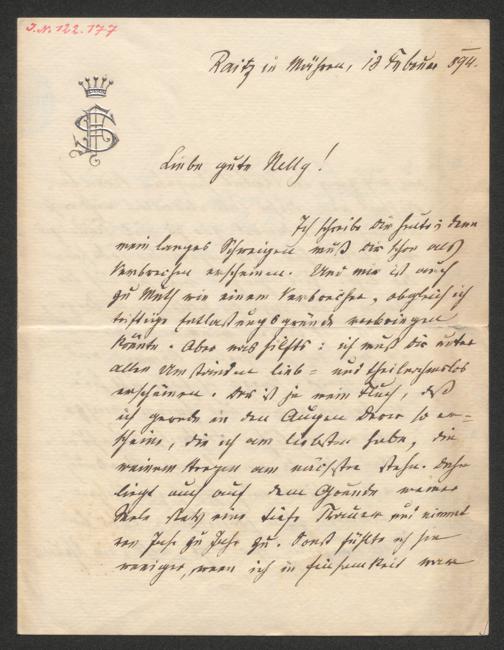 J.N. 122.177
Raitz in Mähren, 18 Februar 894.
Liebe gute Nelly!
Ich schreibe Dir heute; denn
mein langes Schweigen muß Dir schon als
Verbrechen erscheinen. Und mir ist auch
zu Muth wie einem Verbrecher, obgleich ich
triftige Entlastungsgründe vorbringen
könnte. Aber was hilfts: ich muß Dir unter
allen Umständen lieb- und theilnahmslos
erscheinen. Das ist ja mein Fluch, daß
ich gerade in den Augen Derer so er-
scheine, die ich am liebsten habe, die
meinem Herzen am nächsten stehn. Daher
liegt auch auf dem Grunde meiner
Seele stets eine tiefe Trauer und nimmt
von Jahr zu Jahr zu. Sonst fühlte ich sie
weniger, wenn ich in Einsamkeit war